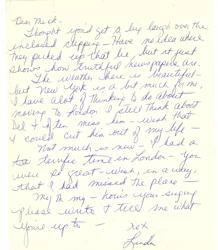 Dear Mick -
Thought you'd get a big laugh over the
enclosed clipping - Have no idea where
they picked up that lie, but it just
shows how truthful newspapers are.
The weather here is beautiful -
but New York is a bit much for me.
I have alot of thinking to do about
moving to London. I still think about
& often miss him - wish that
I could cut him out of my life -
Not much is new - I had a
terrific time in London - You
were so great - wish, in a way,
that I had missed the plane -
My my - how's your singing
please write & tell me what
you're up to -
xox
Linda